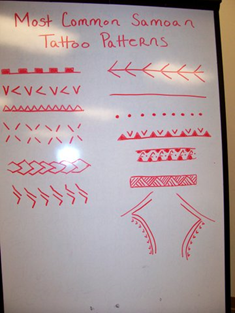 Most Common Samoan
Tattoo Patterns